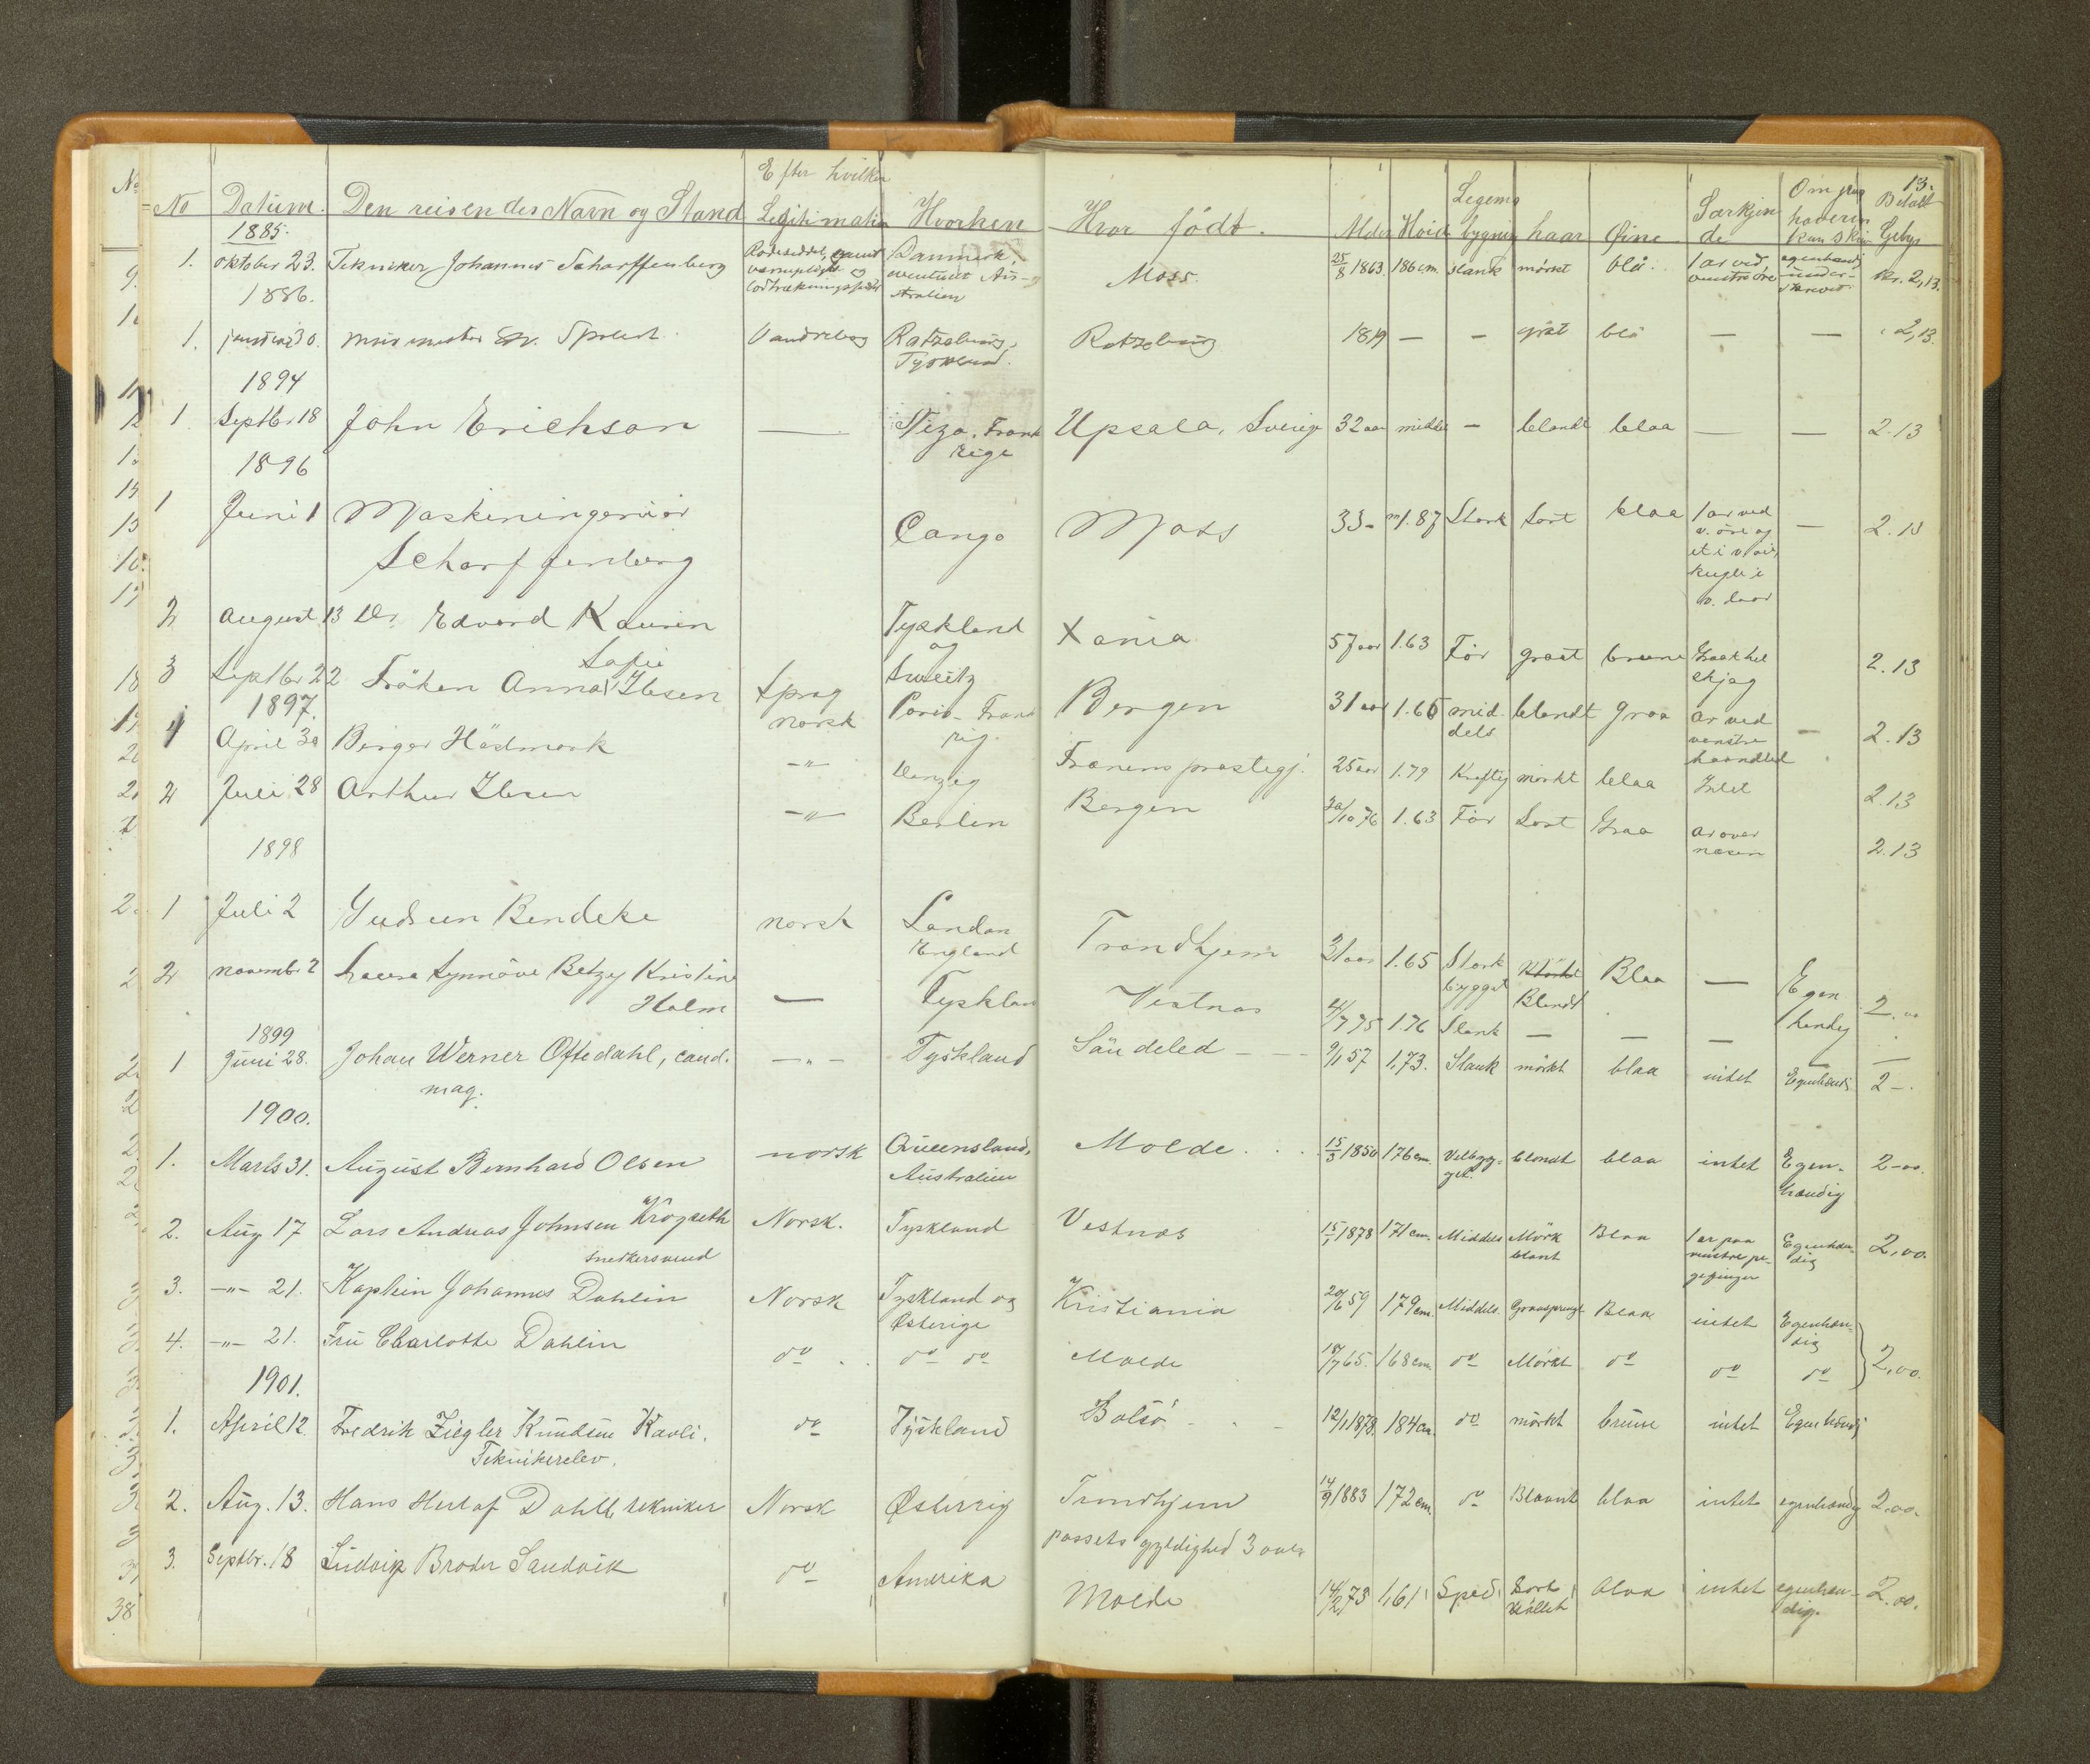 13.
No Datum. Den reisendes Navn og Stand Efter hvilken Legitimation Hvorhen Hvor født. Alder Høide Legems bygning haar Øine Særkjende Om pas haveren kan skrive Betalt Gebyr
1885.
1. oktober 23. Tekniker Johannes Scharffenberg Danmark, eventuelt Australien Moss. 25/8 1863. 186 cm. slank mørkt blå. 1 ar ved venstre øre egenhændig under- skrevet. Kr. 2,13.
1886.
1. januar 30. murmester Vandrebog Ratzeburg, Tyskland. Ratzeburg 1819 — — gråt blå — — " 2,13.
1894
1 Septbr 18 John Erichson — Frank rige Upsala, Sverige 32 aar middel — blondt blaa — — 2.13
1896
1 Juni 1 Maskiningeniør Scharffenberg Congo Moss 33 " m 1.87 Stærk Sort blaa 1 ar ved v. øre og et i v. kugle i v. laar — 2.13
2 August 13 Dr. Edvard Kaurin Tyskland og Sweitz Xania 57 aar 1.63 Før graat brune Graat hel skjæg 2.13
3 Septbr 22 Frøken Anna Sofie Ibsen Sprog norsk Paris - Frank rig. Bergen 31 aar 1.65 mid- dels blondt graa ar ved venstre haandled — 2.13
1897.
1 April 30 Birger Hastmark —"— Danzig Frænens præstegj. 25 aar 1.79 Kraftig mørkt blaa Intet 2.13
2 Juli 28 Arthur Ibsen —"— Berlin Bergen 30/10 76 1.63 Før Sort Graa ar over næsen 2.13
1898
1 Juli 2 Gudrun Bendeke norsk London England Trondhjem 21 aar 1.65 Stærk bygget Blondt Blaa — Egen hendig 2.00
2 novembr 2 Laura Synnøve Betzy Kristine Holm — Tyskland Vestnæs 4/7 75 1.76 Slank — — — —
1899
1 Juni 28. Johan Werner Oftedahl, cand. mag. —"— Tyskland Søndeled 9/1 57 1,73. Slank mørkt blaa intet Egenhændig 2 -.
1900.
1. Marts 31. August Bernhard Olsen norsk Queensland, Australien Molde. 15/3 1850 176 cm. Velbyg- get. blondt blaa intet Egen- hændig 2-00.
2. Aug 17 Lars Andreas Johnsen Krogsæth snedkersvend Norsk. Tyskland Vestnæs 15/1 1878 171 cm. Middels Mørk blont Blaa 1 ar paa venstre pe- gefinger Egenhæn- dig 2,00.
3. —"— 21. Kaptein Johannes Dahlin Norsk Tyskland og Østerige Kristiania 20/6 59 179 cm. Middels. Graasprængt Blaa intet Egenhæn- dig
4. —"— 21. Fru Charlotte Dahlin do do do Molde 18/7 65. 168 cm. do Mørkt do do do 2,00.
1901.
1. April 12. Fredrik Ziegler Knudsen Kavli. Teknikerelev. do Tyskland Bolsø 12/1 1878. 184 cm. do mørkt brune intet Egenhændig
2. Aug. 13. Hans Herlof Dahl, tekniker Norsk Østerrig Trondhjem 14/9 1883 172 cm. do Blondt blaa intet egenhændig 2.00.
passets gyldighed 3 aar
3. Septbr. 18 Ludvig Broder Sandvik do Amerika Molde 14/12 73 1,61 Sped blaa intet egenhæn- dig. 2.00.
38